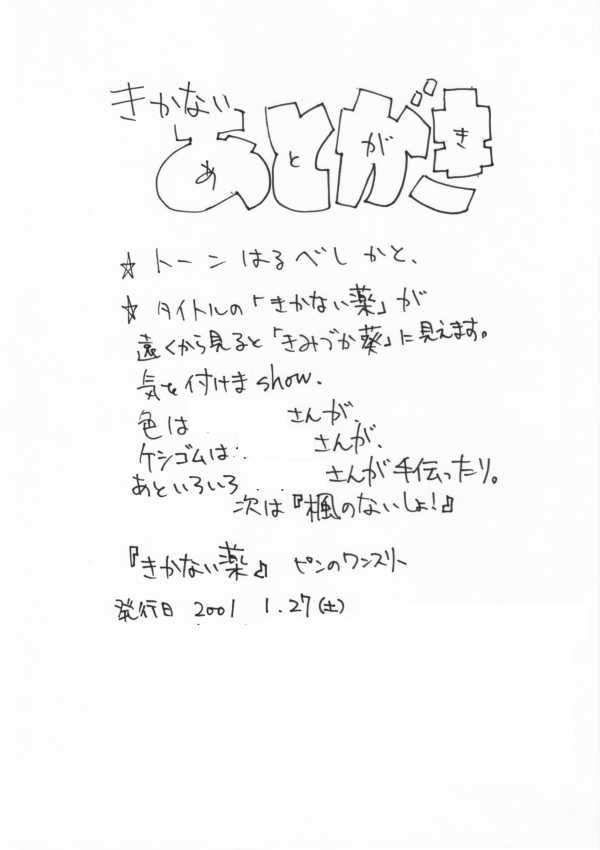 きかない
あとがき
☆ トーンはるべしかと、
☆ タイトルの「きかない薬」が
遠くから見ると「きみづか葵」に見えます。
気を付けまshow.
色は さんが、
ケシゴムは: さんが、
あといろいろ さんが手伝ったり。
次は『楓のないしょ!』
『きかない薬』 ピンのワンスリー
発行日 2001 1.27(土)